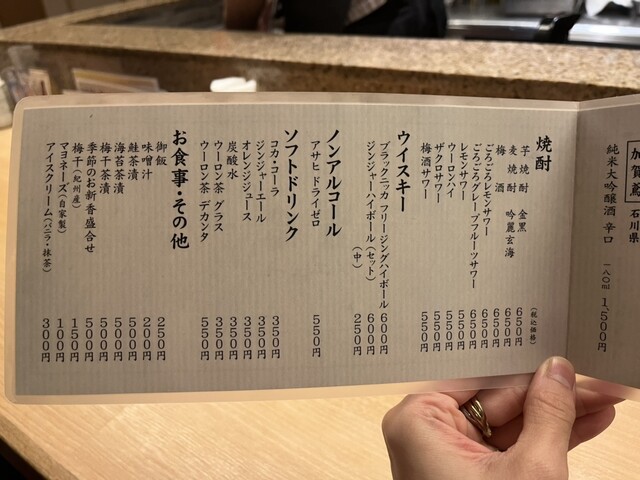 加賀鳶 石川県
純米大吟醸酒 辛口 一八〇ml 1,500円
焼酎 (税込価格)
芋焼酎 金黒 650円
麦焼酎 吟麗玄海 650円
梅酒 650円
ごろごろレモンサワー 650円
ごろごろグレープフルーツサワー 650円
レモンサワー 550円
ウーロンハイ 550円
ザクロサワー 550円
梅酒サワー 550円
ウイスキー
ブラックニッカ フリージングハイボール 600円
ジンジャーハイボール(セット) 600円
(中) 250円
ノンアルコール
アサヒ ドライゼロ 550円
ソフトドリンク
コカ・コーラ 350円
ジンジャーエール 350円
オレンジジュース 350円
炭酸水 350円
ウーロン茶 グラス 350円
ウーロン茶 デカンタ 550円
お食事・その他
御飯 250円
味噌汁 200円
鮭茶漬 500円
海苔茶漬 500円
梅干茶漬 500円
季節のお新香盛合せ 500円
梅干(紀州産) 150円
マヨネーズ(自家製) 100円
アイスクリーム(バニラ・抹茶) 300円